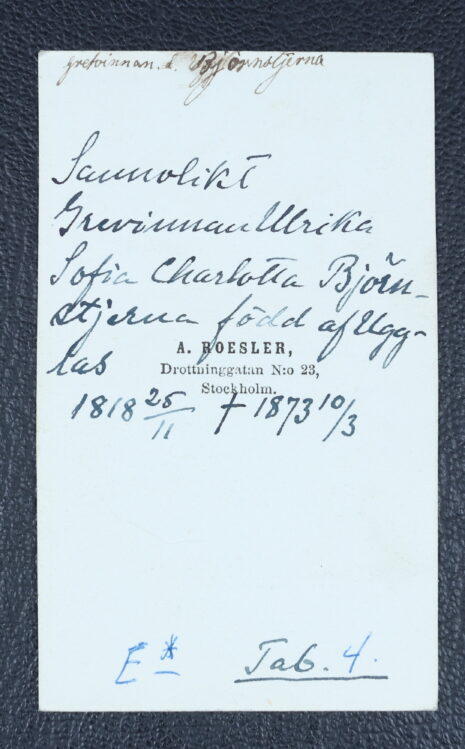 grefvinnan. Björnstjerna
Sannolikt
Grevinnan Ulrika
Sofia Charlotta Björn-
stjerna född af Ugg-
las
A. ROESLER,
Drottninggatan N:o 23,
Stockholm.
1818 25/11 † 1873 10/3
E *
Tab. 4.